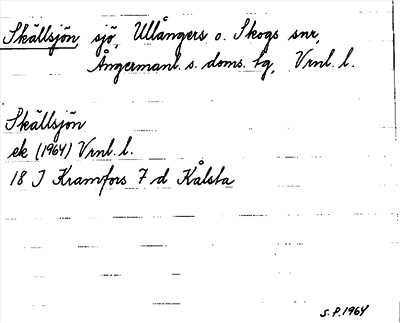 Skällsjön, sjö, Ullångers o. Skogs snr,
Ångermanl. s. doms. tg, Vrnl. l.
Skällsjön
ek (1964) Vrnl. l.
18 J Kramfors 7 d Kålsta
S.P. 1964